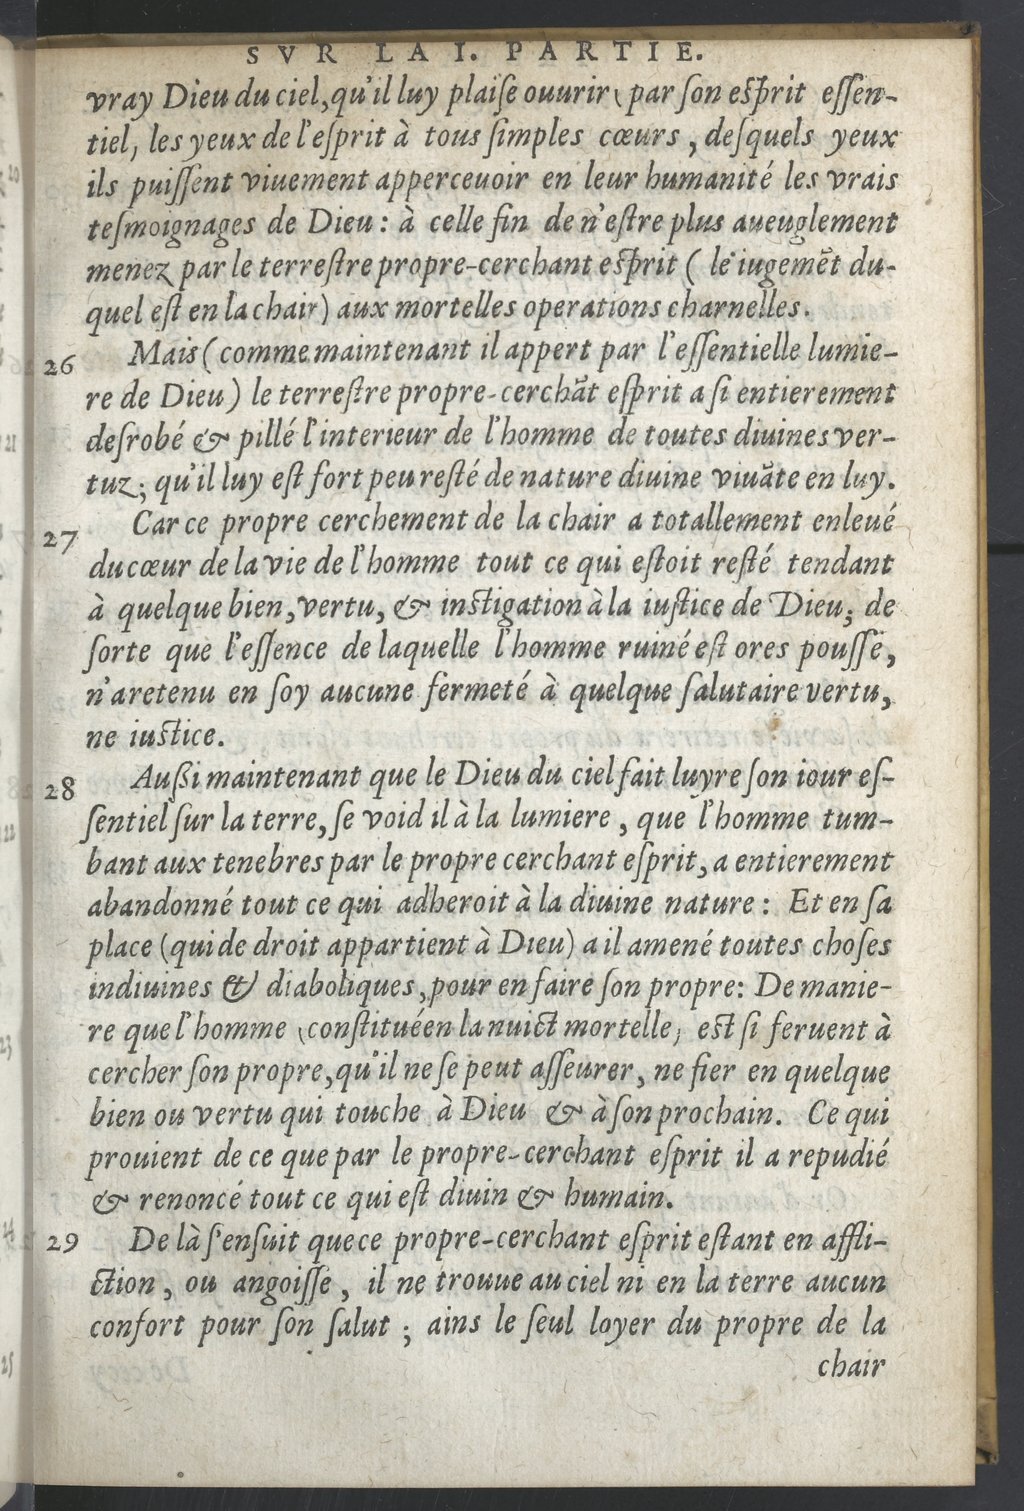 SVR LA I. PARTIE.
vray Dieu du ciel, qu'il luy plaiſe ouurir (par ſon eſprit eſſen-
tiel, les yeux de l'eſprit à tous ſimples cœurs, deſquels yeux
ils puiſſent viuement apperceuoir en leur humanité les vrais
teſmoignages de Dieu: à celle fin de n'eſtre plus aueuglement
menez par le terreſtre propre-cerchant eſprit ( le iugemẽt du-
quel eſt en la chair) aux mortelles operations charnelles.
26 Mais (comme maintenant il appert par l'eſſentielle lumie-
re de Dieu) le terreſtre propre-cerchãt eſprit a ſi entierement
deſrobé & pillé l'interieur de l'homme de toutes diuines ver-
tuz; qu'il luy eſt fort peu reſté de nature diuine viuãte en luy.
27 Car ce propre cerchement de la chair a totallement enleué
du cœur de la vie de l'homme tout ce qui eſtoit reſté tendant
à quelque bien, vertu, & inſtigation à la iuſtice de Dieu; de
ſorte que l'eſſence de laquelle l'homme ruiné eſt ores pouſſé,
n'a retenu en ſoy aucune fermeté à quelque ſalutaire vertu,
ne iuſtice.
28 Auſſi maintenant que le Dieu du ciel fait luyre ſon iour eſ-
ſentiel ſur la terre, ſe void il à la lumiere, que l'homme tum-
bant aux tenebres par le propre cerchant eſprit, a entierement
abandonné tout ce qui adheroit à la diuine nature: Et en ſa
place (qui de droit appartient à Dieu) a il amené toutes choſes
indiuines & diaboliques, pour en faire ſon propre: De manie-
re que l'homme (conſtitué en la nuict mortelle, eſt ſi feruent à
cercher ſon propre, qu'il ne ſe peut aſſeurer, ne fier en quelque
bien ou vertu qui touche à Dieu & à ſon prochain. Ce qui
prouient de ce que par le propre-cerchant eſprit il a repudié
& renoncé tout ce qui eſt diuin & humain.
29 De là ſ'enſuit que ce propre-cerchant eſprit eſtant en affli-
ction, ou angoiſſe, il ne trouue au ciel ni en la terre aucun
confort pour ſon ſalut; ains le ſeul loyer du propre de la
chair